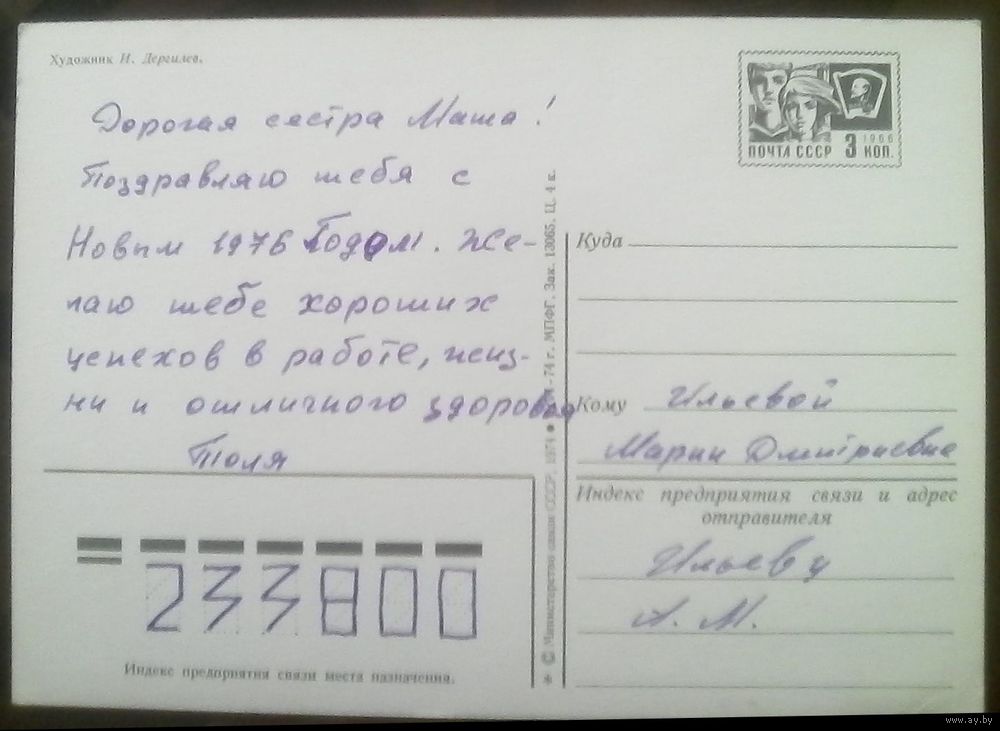 Художник И. Дергилев.
ПОЧТА СССР 3 1966 КОП.
Дорогая сестра Маша!
Поздравляю тебя с
Новым 1976 Годом. Же-
лаю тебе хороших
успехов в работе, жиз-
ни и отличного здоровья
Толя
Куда
Кому Ильевой
Марии Дмитриевне
Индекс предприятия связи и адрес
отправителя
Ильеву
А. М.
233800
Индекс предприятия связи места назначения.
* © Министерство связи СССР, 1974 -74 г. МПФГ. Зак. 13065. Ц. 4 к.
www.ay.by